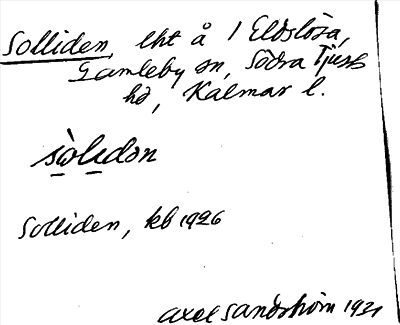 Solliden, lht å 1 Eldslösa,
Gamleby sn, Södra Tjusts
hd, Kalmar l.
sòlıdən
Solliden, kb 1926
Axel Sandström 1931